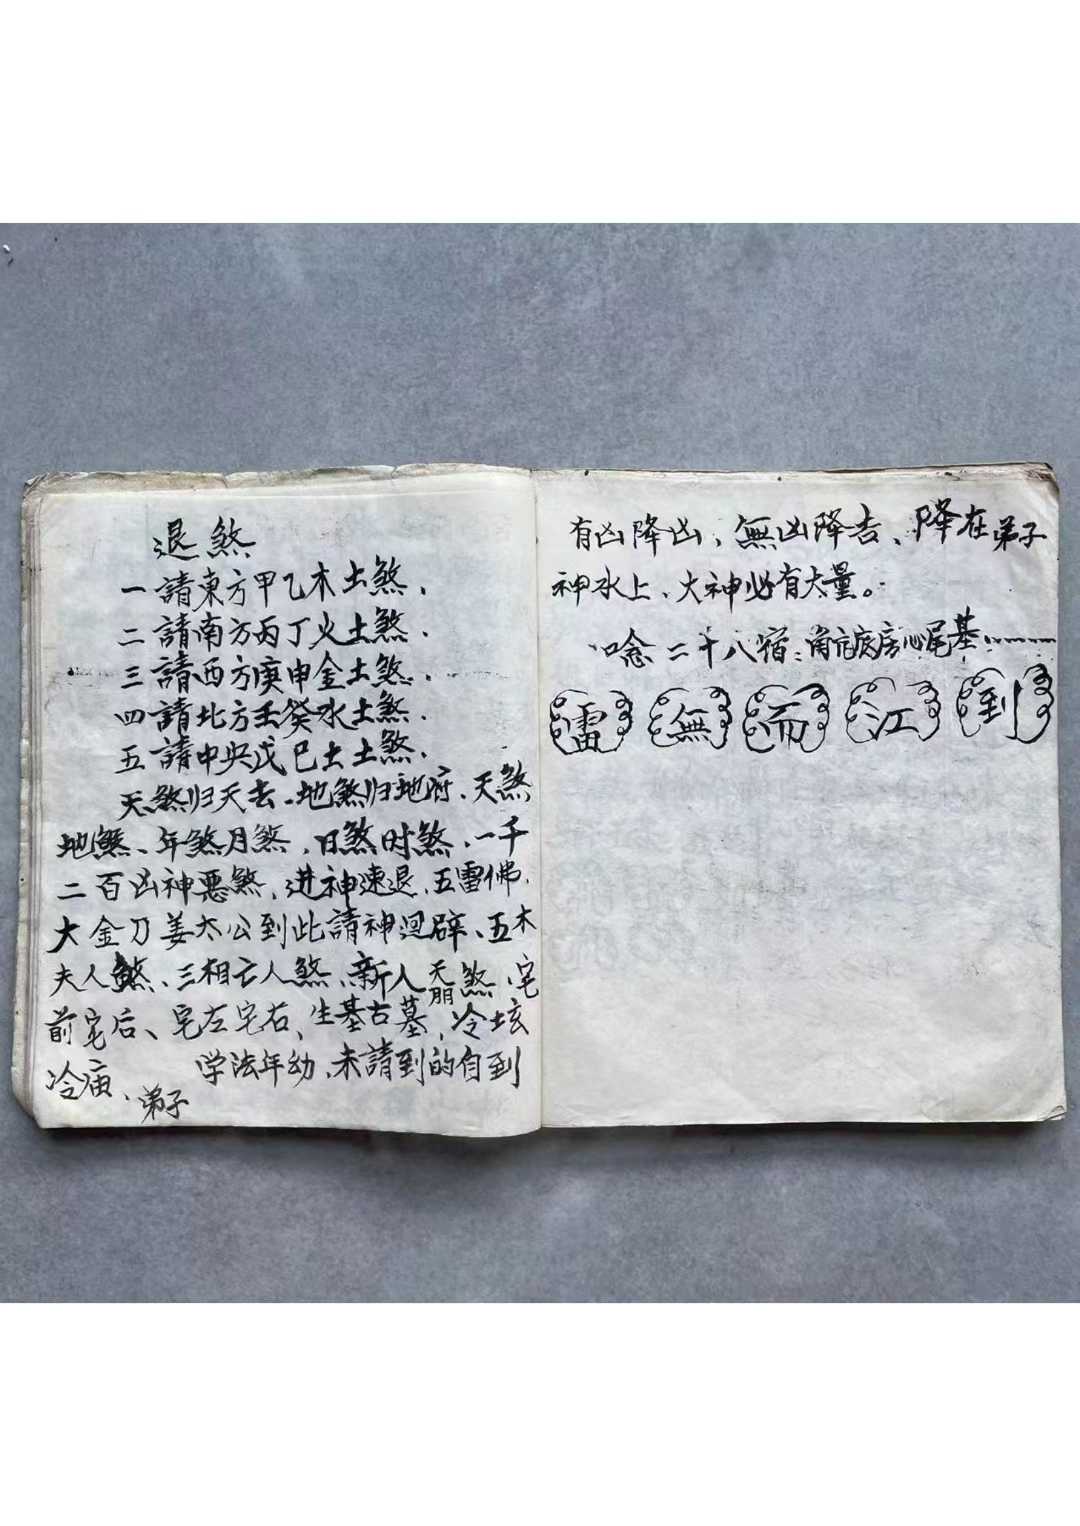 退煞
一請東方甲乙木土煞.
二請南方丙丁火土煞.
三請西方庚申金土煞.
四請北方壬癸水土煞.
五請中央戊巳土土煞.
天煞归天去、地煞归地府、天煞
地煞、年煞月煞、日煞时煞、一千
二百凶神恶煞、进神速退、五雷佛、
大金刀姜太公到此請神迴辟、五木
夫人煞、三相亡人煞、新人天朋煞、宅
前宅后、宅左宅右、生基古墓、冷坛
冷庙、弟子学法年幼、未請到的自到
有凶降凶、無凶降吉、降在弟子
神水上、大神必有大量。
唸二十八宿：角亢底房心尾基
雷 無 而 江 到